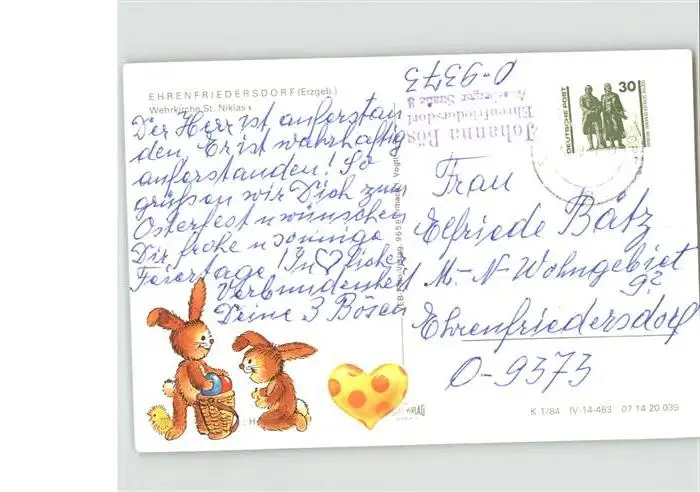 EHRENFRIEDERSDORF (Erzgeb.)
Wehrkirche St. Niklas
Der Herr ist auferstan
den, Er ist wahrhaftig
auferstanden! So
grüßen wir Dich zum
Osterfest u wünschen
Dir frohe u sonnige
Feiertage! In ♡licher
Verbundenheit
Deine 3 Bösen
0-9373
Straße 8
Ehrenfriedersdorf
Johanna Bös
DEUTSCHE POST
30
Frau
Elfriede Batz
M.-N-Wohngebiet
92
Ehrenfriedersdorf
O-9373
K 1/84 IV-14-483 07 14 20 039